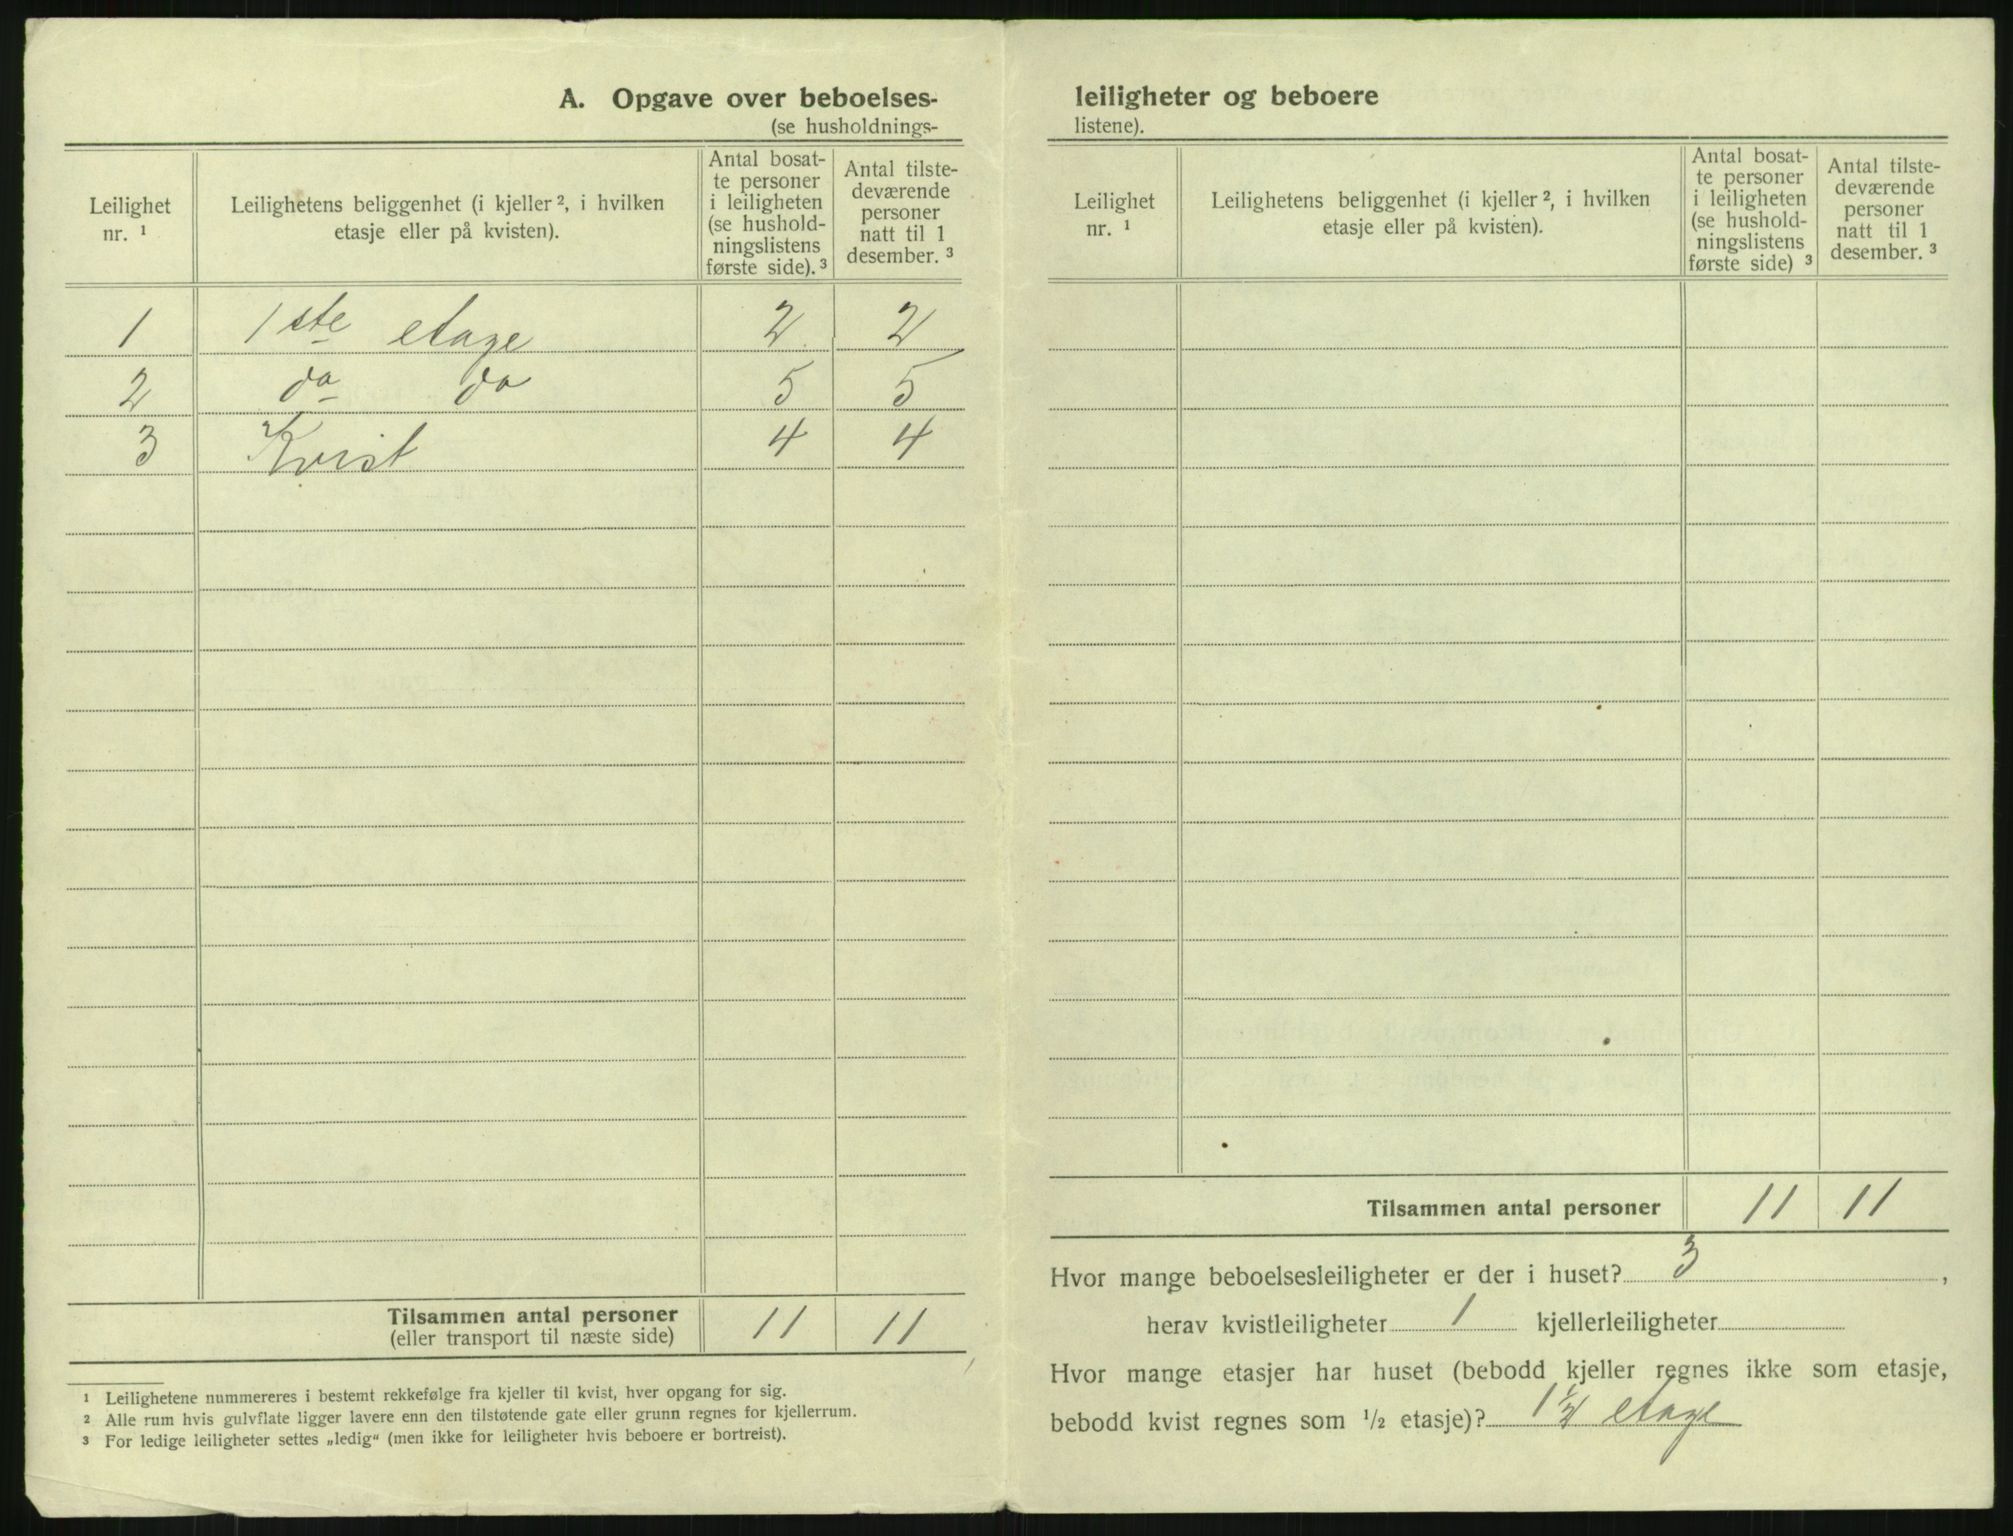 A. Opgave over beboelses-
(se husholdnings-
Leilighet
nr. ¹
Leilighetens beliggenhet (i kjeller ², i hvilken
etasje eller på kvisten).
Antal bosat-
te personer
i leiligheten
(se hushold-
ningslistens
første side). ³
Antal tilste-
deværende
personer
natt til 1
desember. ³
1 1ste etage 2 2
2 do do 5 5
3 Kvist 4 4
Tilsammen antal personer 11 11
(eller transport til næste side)
¹ Leilighetene nummereres i bestemt rekkefølge fra kjeller til kvist, hver opgang for sig.
² Alle rum hvis gulvflate ligger lavere enn den tilstøtende gate eller grunn regnes for kjellerrum.
³ For ledige leiligheter settes „ledig“ (men ikke for leiligheter hvis beboere er bortreist).
leiligheter og beboere
listene).
Leilighet
nr. ¹
Leilighetens beliggenhet (i kjeller ², i hvilken
etasje eller på kvisten).
Antal bosat-
te personer
i leiligheten
(se hushold-
ningslistens
første side) ³
Antal tilste-
deværende
personer
natt til 1
desember. ³
Tilsammen antal personer 11 11
Hvor mange beboelsesleiligheter er der i huset? 3 ,
herav kvistleiligheter 1 kjellerleiligheter
Hvor mange etasjer har huset (bebodd kjeller regnes ikke som etasje,
bebodd kvist regnes som ½ etasje)? 1½ etage